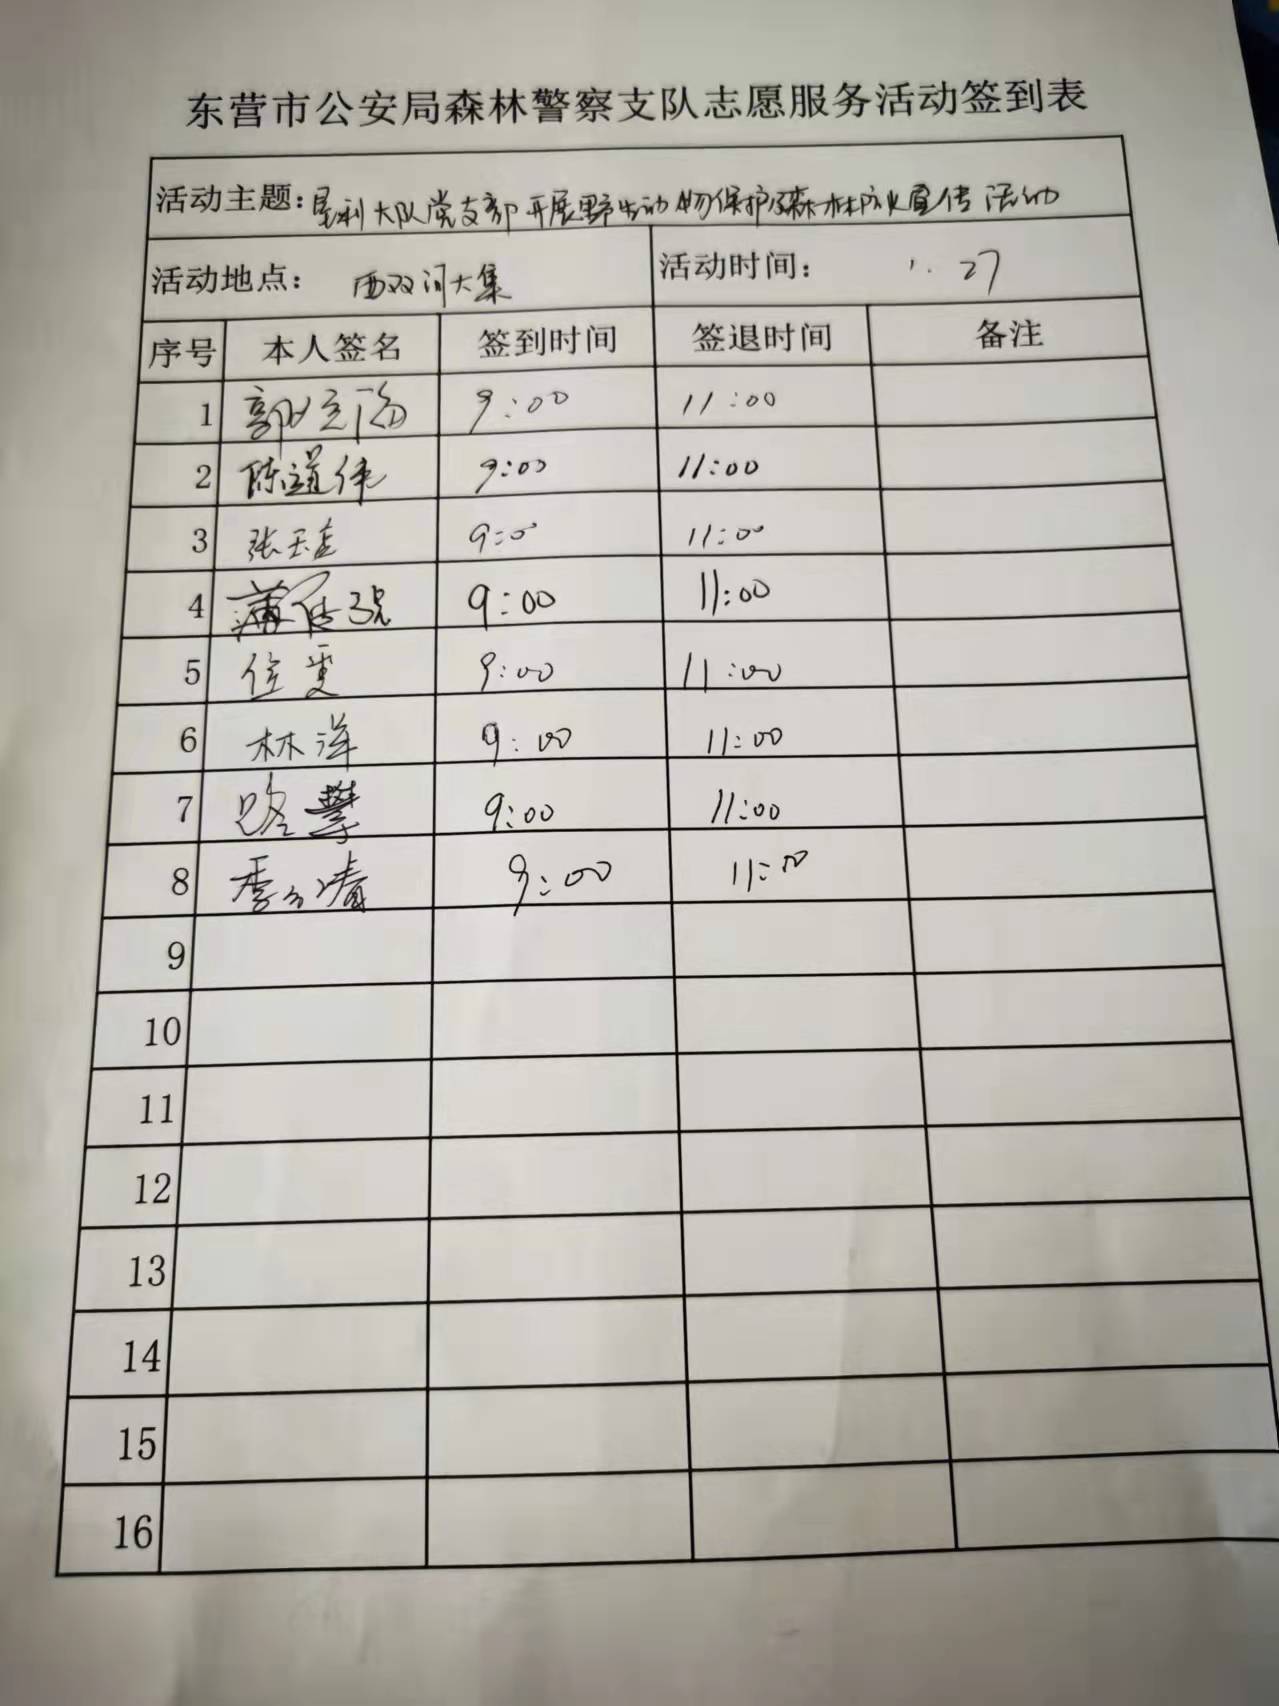 东营市公安局森林警察支队志愿服务活动签到表
活动主题：垦利大队党支部开展野生动物保护及森林防火宣传活动
活动地点：西双河大集 活动时间：1.27
序号 本人签名 签到时间 签退时间 备注
1 9:00 11:00
2 陈道伟 9:00 11:00
3 张玉 9:00 11:00
4 蒲 9:00 11:00
5 9:00 11:00
6 林洋 9:00 11:00
7 路攀 9:00 11:00
8 清 9:00 11:00
9
10
11
12
13
14
15
16